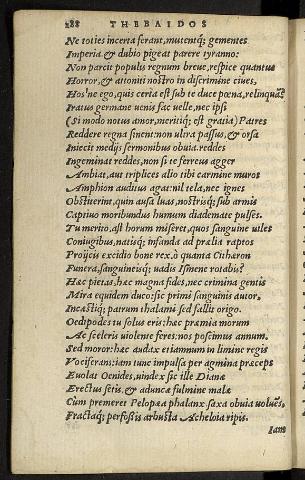 188 THEBAIDOS
Ne toties incerta ferant, mutentq́; gementes
Imperia, & dubio pigeat parere tyranno:
Non parcit populis regnum breue, respice quantus
Horror, & attoniti nostro in discrimine ciues,
Hos'ne ego, quis certa est sub te duce pœna, relinquã?
Iratus germane uenis fac uelle, nec ipsi
(Si modo notus amor, meritiq́; est gratia) Patres
Reddere regna sinent: non ultra passus, & orsa
Iniecit medijs sermonibus obuia. reddes
Ingeminat reddes, non si te ferreus agger
Ambiat, aut triplices alio tibi carmine muros
Amphion auditus agat: nil tela, nec ignes
Obstiterint, quin ausa luas, nostrisq́; sub armis
Captiuo moribundus humum diademate pulses.
Tu merito, ast horum miseret, quos sanguine uiles
Coniugibus, natisq́; infanda ad prælia raptos
Proijcis excidio bone rex, ô quanta Cithæron
Funera, sanguineisq́; uadis Ismene rotabis?
Hæc pietas, hæc magna fides, nec crimina gentis
Mira equidem duco: sic primi sanguinis autor,
Incæstiq́; patrum thalami sed fallit origo.
Oedipodes tu solus eris: hæc præmia morum
Ac sceleris uiolente feres: nos poscimus annum.
Sed moror: hæc audax etiamnum in limine regis
Vociferans: iam tunc impulsa per agmina præceps
Euolat Oenides, uindex sic ille Dianæ
Erectus setis, & aduncæ fulmine malæ
Cum premeret Pelopæa phalanx saxa obuia uoluẽs,
Fractaq́; perfossis arbusta Acheloia ripis.
Iam